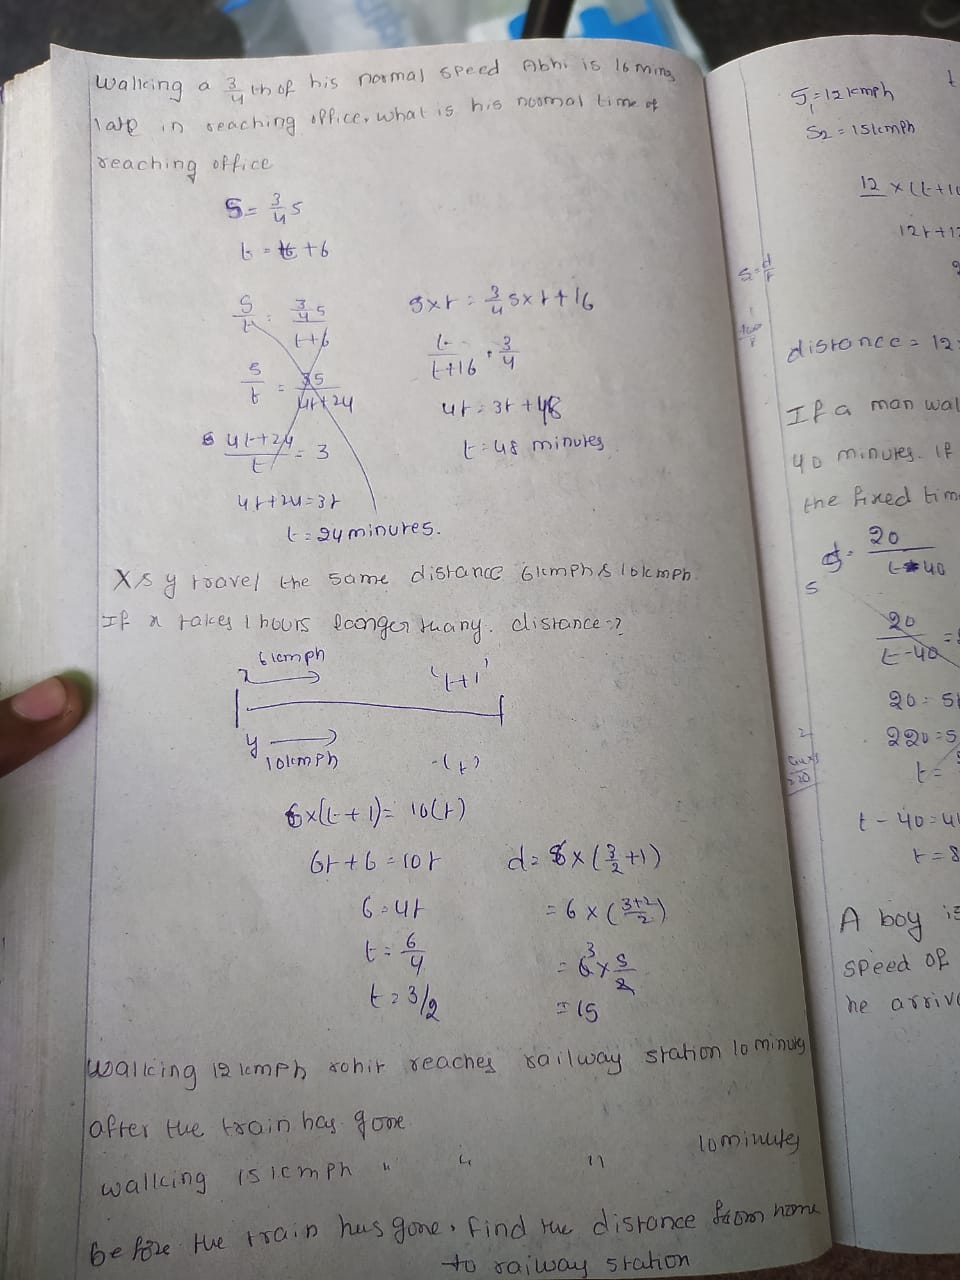 Walking a 3/4 th of his normal speed Abhi is 16 mins
late in reaching office, what is his normal time of
reaching office
S = 3/4 S
t = t + 6
S/t = 3/4 S / t+6
S/t = 3S / 4t+24
4t+24 / t = 3
4t+24=3t
t = 24 minutes.
S×t = 3/4 S×t+16
t / t+16 = 3/4
4t = 3t + 48
t = 48 minutes
X & y travel the same distance 6kmph & 10kmph.
If x takes 1 hours longer than y. distance=?
6kmph
x
(t+1)
y
10kmph
(t)
6×(t+1) = 10(t)
6t+6 = 10t
6 = 4t
t = 6/4
t = 3/2
d = 6 × (3/2 + 1)
= 6 × (3+2 / 2)
= 6 × 5/2
3
= 15
Walking 12 kmph rohit reaches railway station 10 minutes
after the train has gone
walking 15 kmph " " " 10 minutes
before the train has gone, find the distance from home
to railway station
S1 = 12 kmph
S2 = 15 kmph
12 × (t+10
12t+12
S = d/t
distance = 12
If a man wal
40 minutes. If
the fixed tim
20 / t-40
S
20 / t-40 =
20 = 5t
220 = 5
t =
t - 40 = 4
t = 8
A boy is
speed of
he arriv